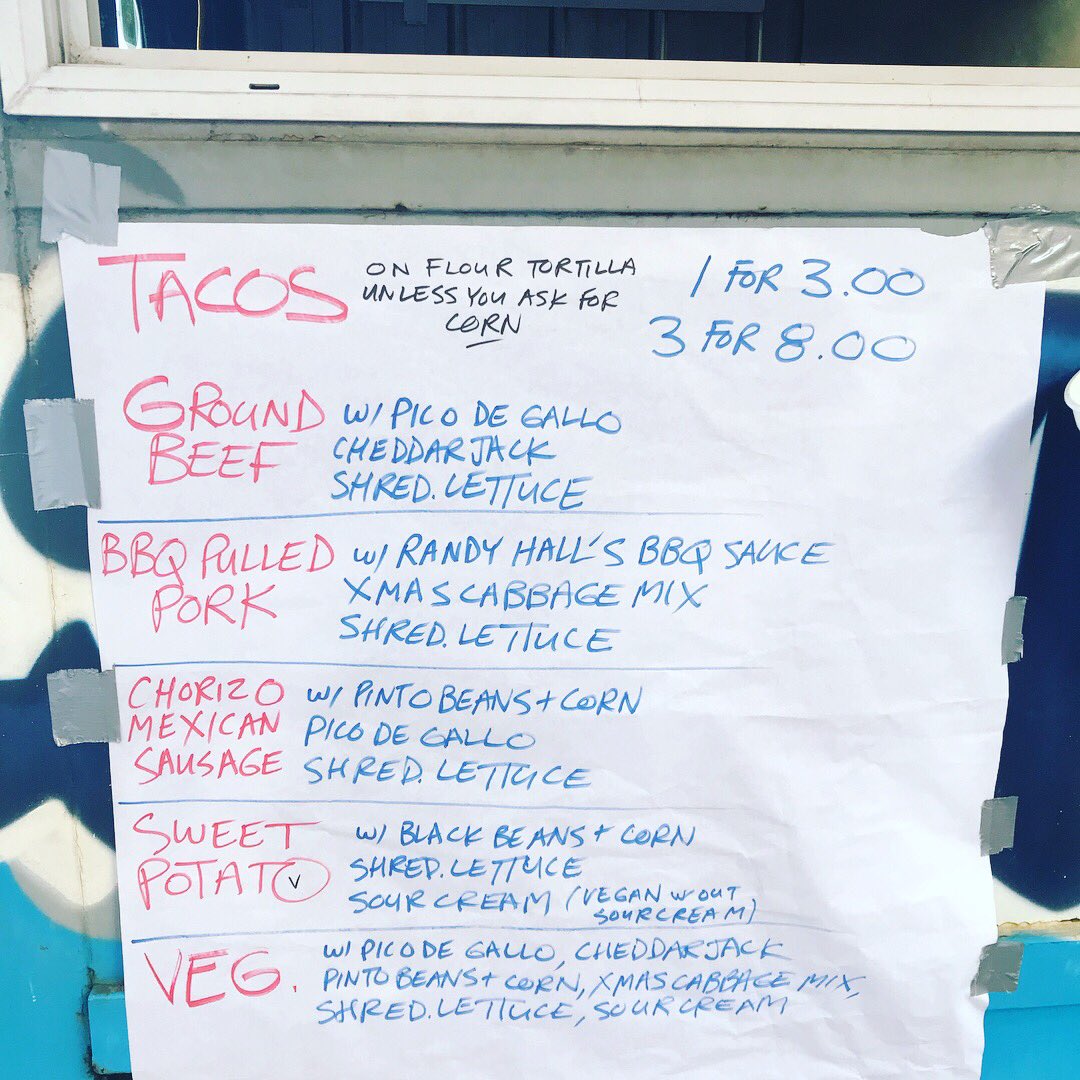 TACOS ON FLOUR TORTILLA
UNLESS YOU ASK FOR
CORN
1 FOR 3.00
3 FOR 8.00
GROUND BEEF
W/ PICO DE GALLO
CHEDDARJACK
SHRED. LETTUCE
BBQ PULLED
PORK
W/ RANDY HALL'S BBQ SAUCE
XMAS CABBAGE MIX
SHRED. LETTUCE
CHORIZO
MEXICAN
SAUSAGE
W/ PINTO BEANS + CORN
PICO DE GALLO
SHRED. LETTUCE
SWEET
POTATO V
W/ BLACK BEANS + CORN
SHRED. LETTUCE
SOUR CREAM (VEGAN W OUT
SOUR CREAM)
VEG.
W/ PICO DE GALLO, CHEDDARJACK
PINTO BEANS + CORN, XMAS CABBAGE MIX,
SHRED. LETTUCE, SOUR CREAM